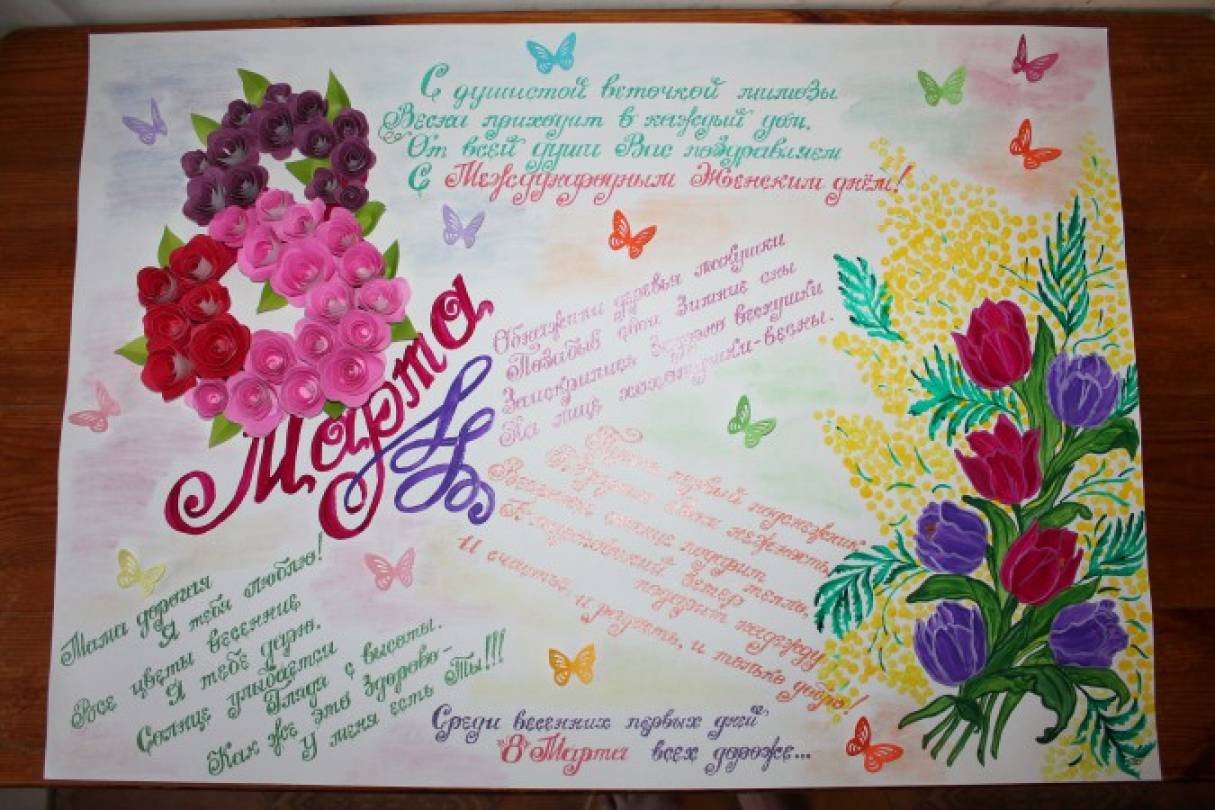 С душистой веточкой мимозы
Весна приходит в каждый дом,
От всей души Вас поздравляем
С Международным Женским днём!
8
Марта
деревья макушки
Позабыв свои Зимние сны
Заискрились Задорно веснушки
На лице хохотушки-весны.
Пусть первый подснежник
Подарит Вам нежность,
Весеннее солнце подарит тепло,
ветер подарит надежду
И счастье, и радость, и только добро!
Мама дорогая
Я тебя люблю!
Все цветы весенние
Я тебе дарю.
Солнце улыбается
Глядя с высоты.
Как же это Здорово-
У меня есть Ты!!!
Среди весенних первых дней
"8 Марта всех дороже...